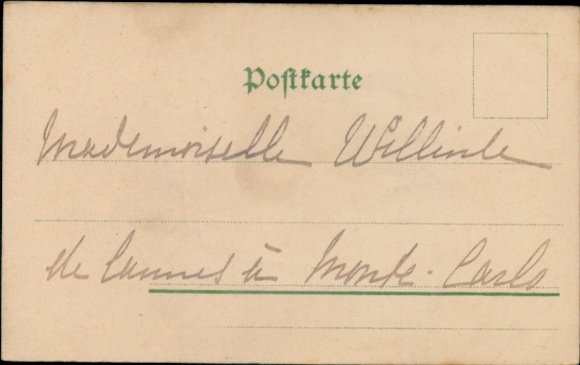 Postkarte
Mademoiselle
de Cannes à Monte-Carlo